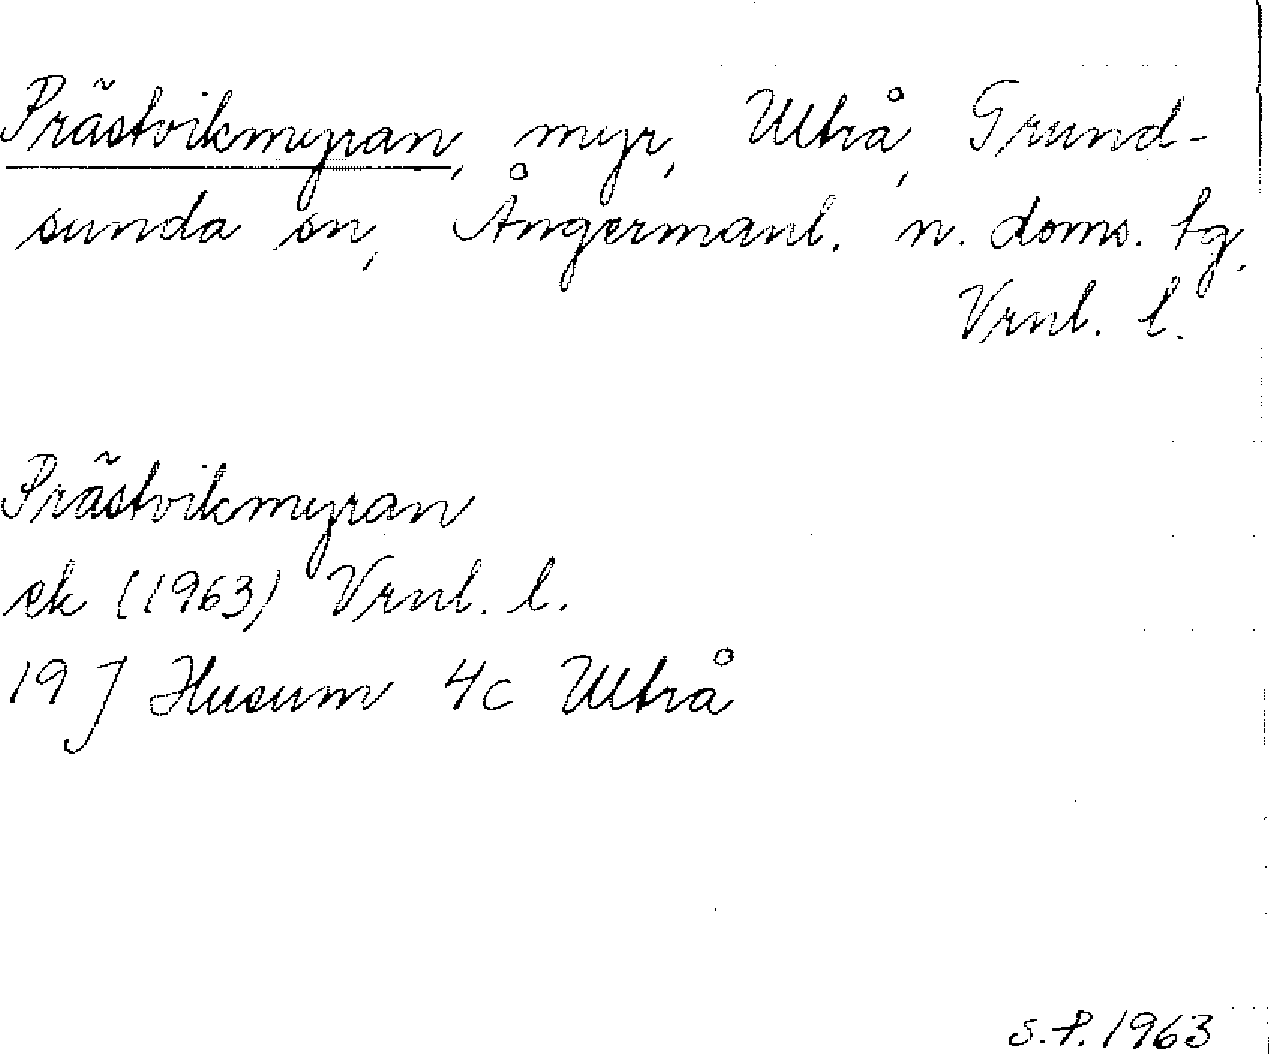 Prästvikmyran, myr, Ultrå, Grund-
sunda sn, Ångermanl. n. doms. tg,
Vrnl. l.
Prästvikmyran
ek (1963) Vrnl. l.
19 J Husum 4c Ultrå
S.P. 1963